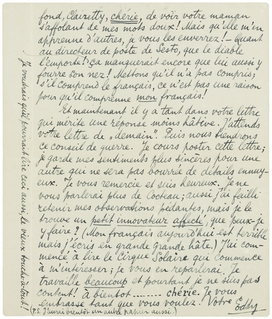 fond, Clairetty, chérie, de voir votre maman
s'affolant de mes mots doux! Mais qu'elle m'en
apprenne d'autres, je vous les enverrez! — Quant
au directeur de poste de Sesto, que le diable
l'emporte! Ça manquerait encore que lui aussi y
fourre son nez! Mettons qu'il n'a pas compris;
s'il comprend le français, ce n'est pas une raison
pour qu'il comprenne mon français!
Et maintenant il y a tant dans votre lettre
qui mérite une réponse moins hâtive. J'attends
votre lettre de "demain". Puis nous tiendrons
ce conseil de guerre. Je cours poster cette lettre;
je garde mes sentiments plus sincères pour une
autre que ne sera pas bourrée de détails ennuy-
eux. Je vous remercie et suis heureux. Je ne
vous parlerai plus de cocteau; aussi j'ai failli
retenir mes observations pédantes, mais je le
trouve un petit innovateur affecté, que peux-je
y faire? (Mon français aujourd'hui est terrible
mais j'écris en grande grande hâte.) J'ai com-
mencé à lire le Cirque Solaire que commence
à m'intéresser; je vous en reparlerai. Je
travaille beaucoup et pourtant je ne suis pas
content. À bientôt ...... chérie. Je vous
embrasse tant que vous voulez. Votre
Eddy
P.S. J'aurai bientôt un autre papier aussi.
Je voudrais qu'il pourrait lire ceci aussi, le vieux